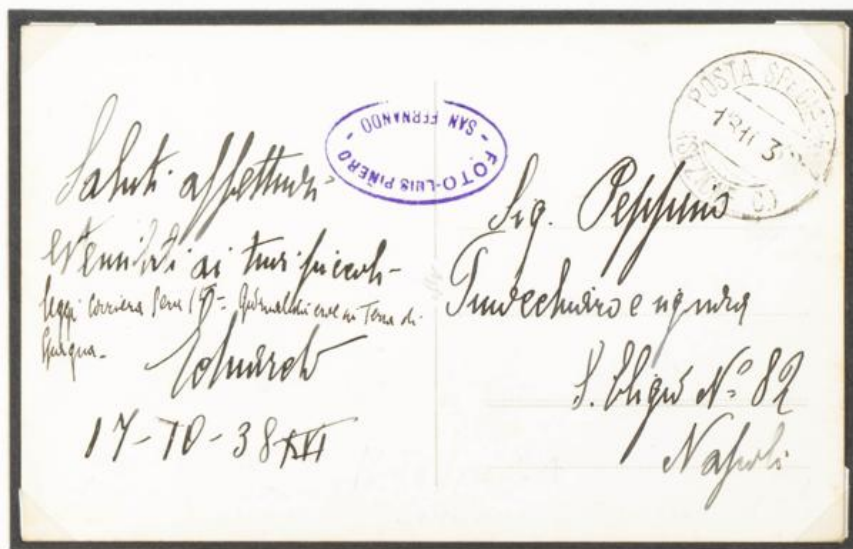 Saluti affettuosi
estensibili ai tuoi piccoli -
leggi Corriere Sera 17 - Giornalidieroe in Terra di
Spagna -
Eduardo
17-10-38 XVI
FOTO-LUIS PIÑERO
- SAN FERNANDO -
POSTA SPECIALE
(SEZIONE C)
Sig. Peppino
e signora
S. Eligio Nº 82
Napoli